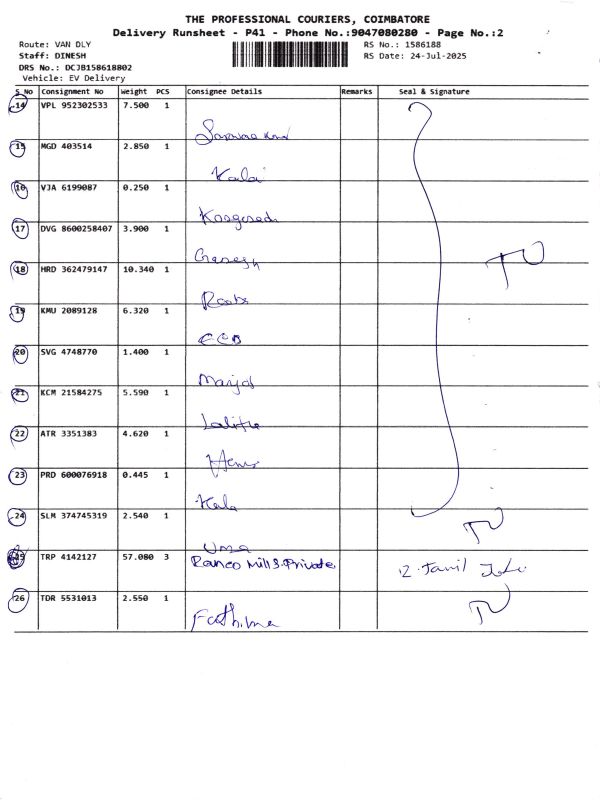 THE PROFESSIONAL COURIERS, COIMBATORE
Delivery Runsheet - P41 - Phone No.:9047080280 - Page No.:2
Route: VAN DLY RS No.: 1586188
Staff: DINESH RS Date: 24-Jul-2025
DRS No.: DCJB158618802
Vehicle: EV Delivery
S.No Consignment No Weight PCS Consignee Details Remarks Seal & Signature
14 VPL 952302533 7.500 1
15 MGD 403514 2.850 1
Kalai
16 VJA 6199087 0.250 1
17 DVG 8600258407 3.900 1
Ganesh
18 HRD 362479147 10.340 1
19 KMU 2089128 6.320 1
20 SVG 4748770 1.400 1
21 KCM 21584275 5.590 1
Lalitha
22 ATR 3351383 4.620 1
23 PRD 600076918 0.445 1
Kala
24 SLM 374745319 2.540 1
Uma
TRP 4142127 57.080 3 Ranco Mills.Private
26 TDR 5531013 2.550 1
Fathima